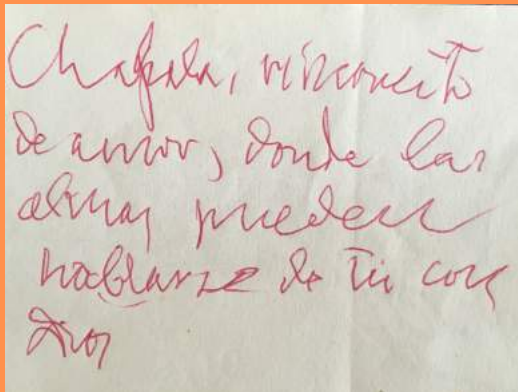 Chapala, rinconcito
de amor, donde las
almas pueden
hablarse de tú con
Dios